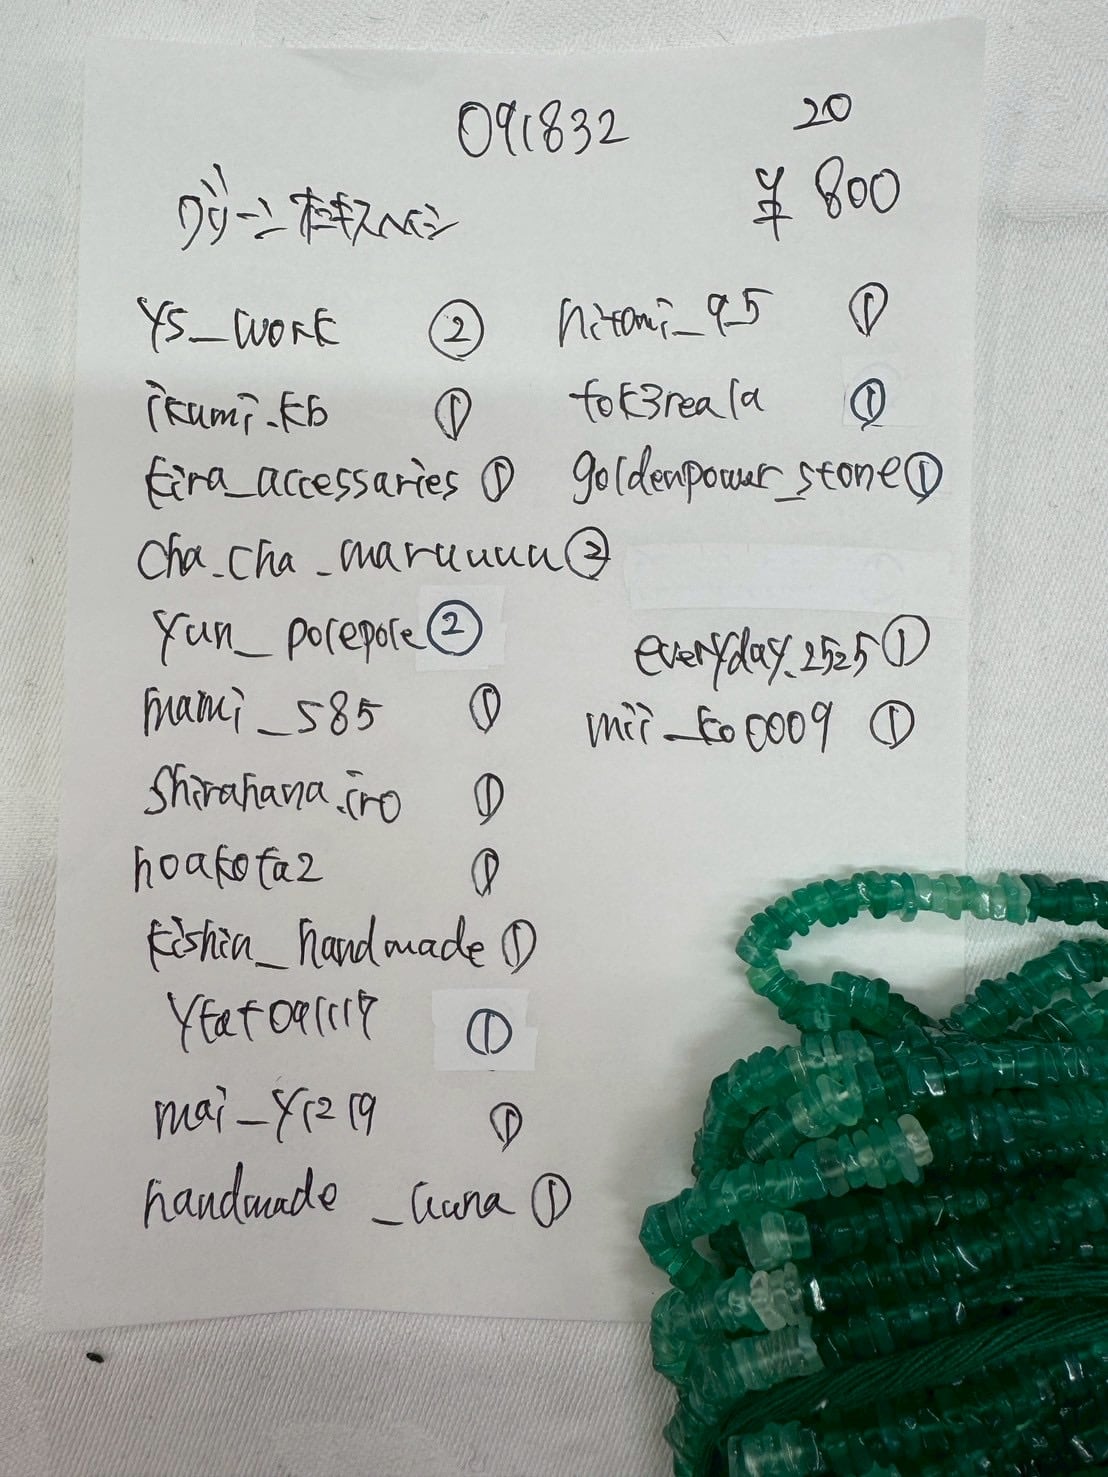 091832
20
グリーンオニキスヘイシ
¥800
YS_work ②
ikumi.kb ①
kira_accessaries ①
cha.cha_maruuuu ②
yun_polepole ②
mami_s85 ①
Shirahana.iro ①
hoakota2 ①
kishin_handmade ①
ytat091117 ①
mai_y1219 ①
handmade_luuna ①
hitomi_95 ①
tok3reala ①
goldenpower_stone ①
everyday.2525 ①
mii_ko0009 ①